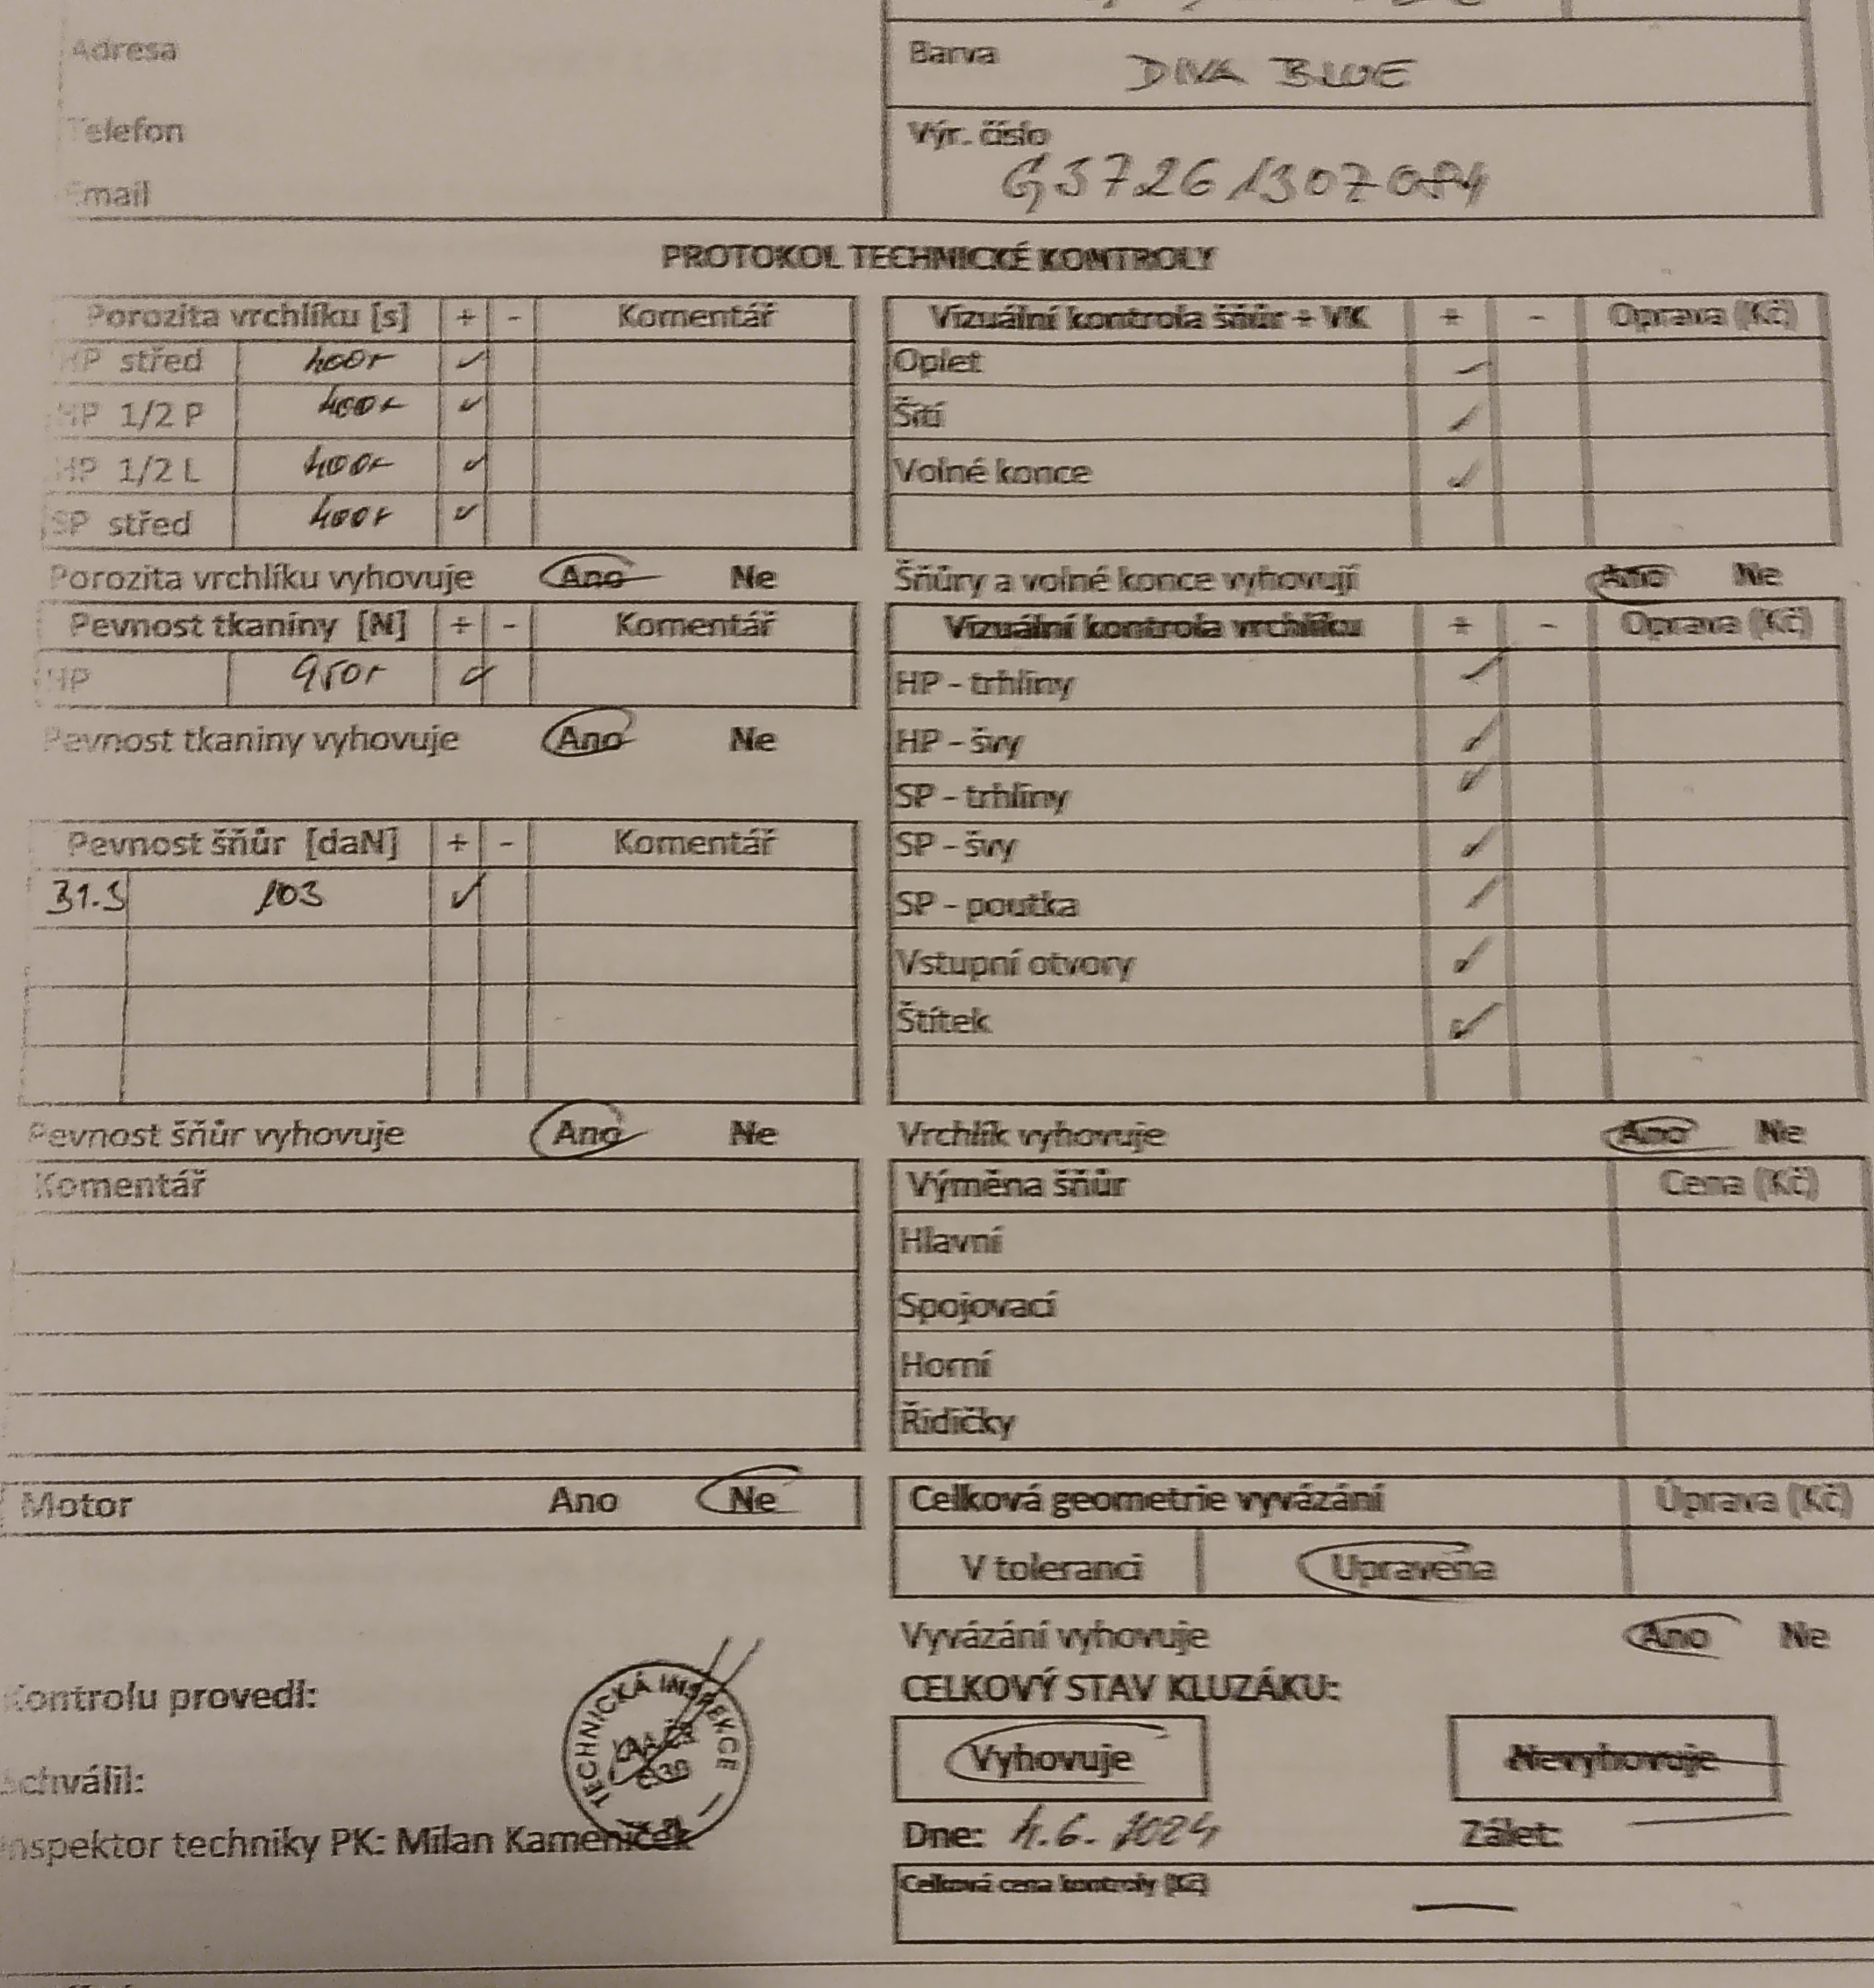 Adresa
Telefon
Email
Barva DIVA BLUE
Výr. číslo
PROTOKOL TECHNICKÉ KONTROLY
Porozita vrchlíku [s] + - Komentář
HP střed ✓
HP 1/2 P ✓
HP 1/2 L ✓
SP střed ✓
Porozita vrchlíku vyhovuje Ano Ne
Pevnost tkaniny [N] + - Komentář
HP ✓
Pevnost tkaniny vyhovuje Ano Ne
Pevnost šňůr [daN] + - Komentář
103 ✓
Pevnost šňůr vyhovuje Ano Ne
Komentář
Motor Ano Ne
Vizuální kontrola šňůr + VK + - Oprava (Kč)
Oplet ✓
Šití ✓
Volné konce ✓
Šňůry a volné konce vyhovují Ano Ne
Vizuální kontrola vrchlíku + - Oprava (Kč)
HP - trhliny ✓
HP - švy ✓
SP - trhliny ✓
SP - švy ✓
SP - poutka ✓
Vstupní otvory ✓
Štítek ✓
Vrchlík vyhovuje Ano Ne
Výměna šňůr Cena (Kč)
Hlavní
Spojovací
Horní
Řidičky
Celková geometrie vyvázání Úprava (Kč)
V toleranci Upravena
Vyvázání vyhovuje Ano Ne
CELKOVÝ STAV KLUZÁKU:
Vyhovuje Nevyhovuje
Dne: 4.6.2024 Zálet:
Celková cena kontroly (Kč)
Kontrolu provedl:
Schválil:
Inspektor techniky PK: Milan Kameníček
TECHNICKÁ INSPEKCE
LAA ČR